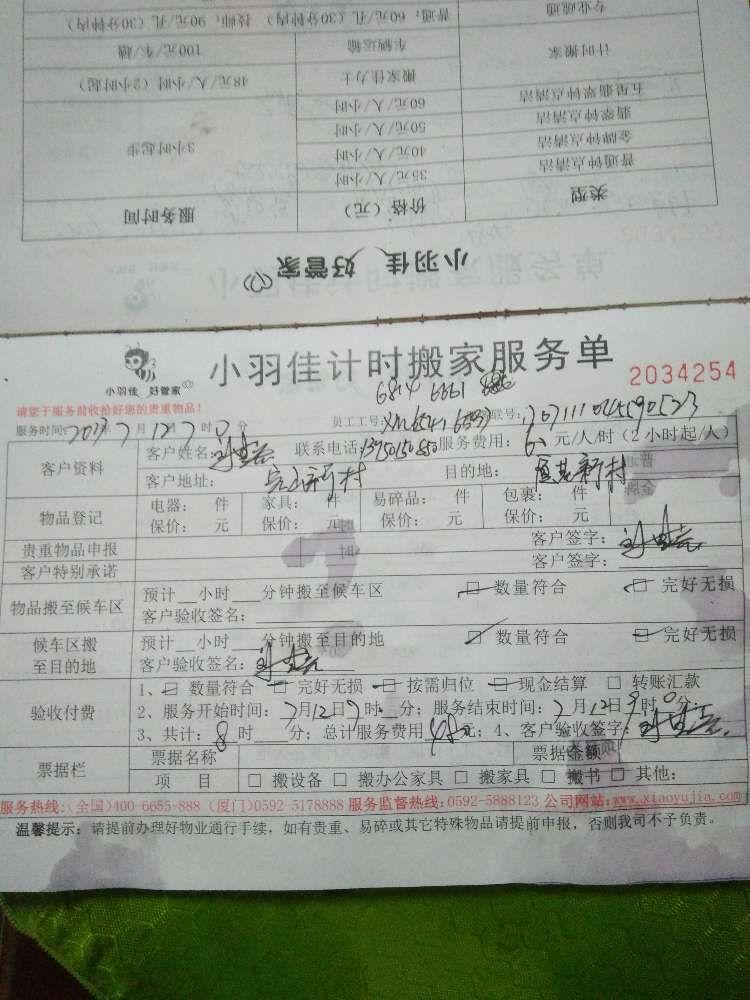 小羽佳 好管家
类型 价格（元） 服务时间
普通钟点清洁 35元/人/小时 3小时起步
金牌钟点清洁 40元/人/小时
翡翠钟点清洁 50元/人/小时
五星翡翠钟点清洁 60元/人/小时
计时搬家 搬家壮力士 48元/人/小时（2小时起）
车辆运输 100元/车/趟
专业疏通 普通：60元/孔（30分钟内） 技师：90元/孔（30分钟内）
小羽佳 好管家
小羽佳计时搬家服务单
2034254
6814 6661
请您于服务前收拾好您的贵重物品！
服务时间：2017年7月12日9时0分 员工工号：联号：
客户资料 客户姓名： 联系电话： 服务费用：6 元/人/时（2小时起/人）
客户地址： 新村 目的地： 新村
物品登记 电器： 件 家具： 件 易碎品： 件 包裹： 件
保价： 元 保价： 元 保价： 元 保价： 元
贵重物品申报 客户签字：
客户特别承诺 客户签字：
物品搬至候车区 预计__小时___分钟搬至候车区 数量符合 完好无损
客户验收签名：
候车区搬至目的地 预计__小时___分钟搬至目的地 数量符合 完好无损
客户验收签名：
验收付费 1、数量符合 完好无损 按需归位 现金结算 □ 转账汇款
2、服务开始时间：7月12日9时__分；服务结束时间：7月12日 时0分；
3、共计：8时___分；总计服务费用 元；4、客户验收签字：
票据栏 票据名称 票据金额
项 目 □ 搬设备 □ 搬办公家具 □ 搬家具 □ 搬书 □ 其他：
服务热线：（全国）400-6655-888（厦门）0592-5178888 服务监督热线：0592-5888123 公司网站：www.xiaoyujia.com
温馨提示：请提前办理好物业通行手续，如有贵重、易碎或其它特殊物品请提前申报，否则我司不予负责。